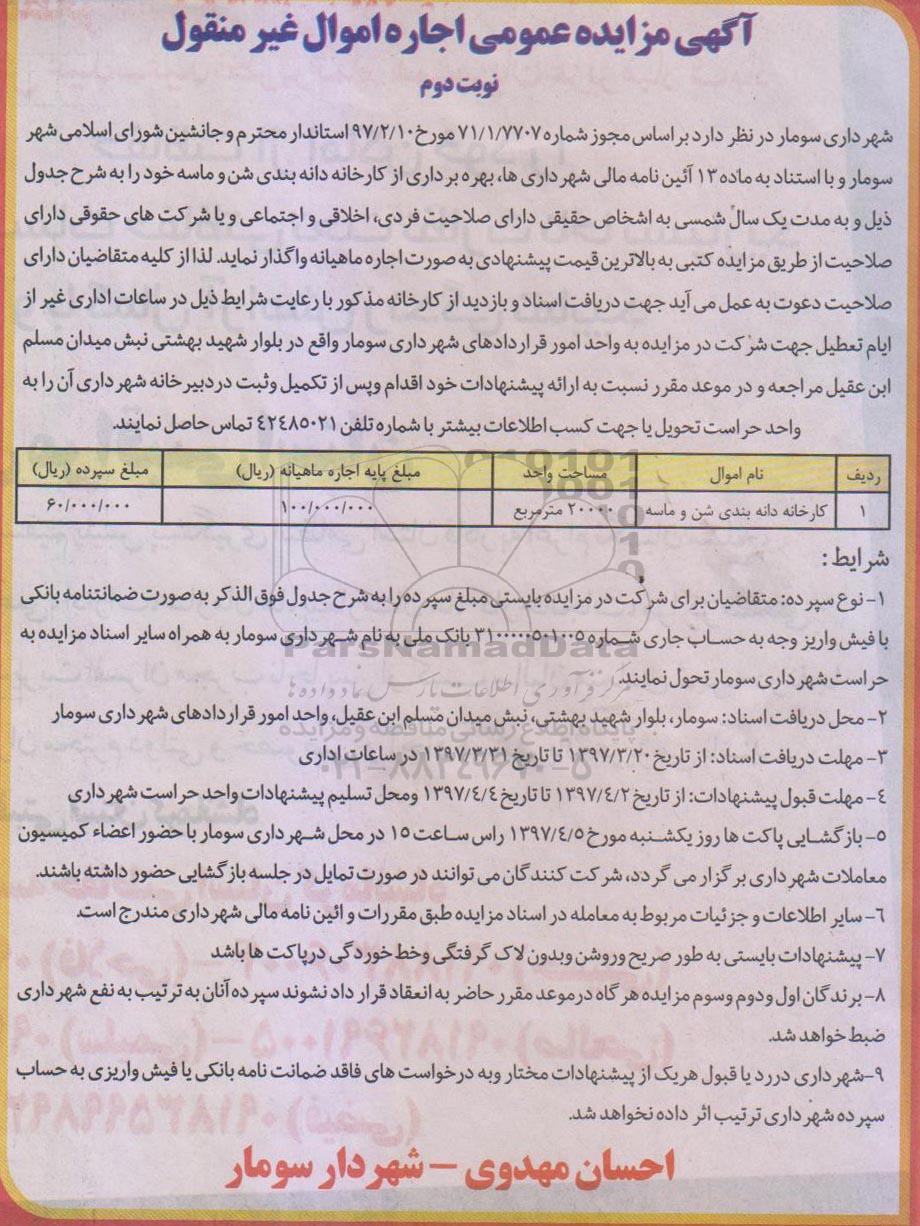 آگهی مزایده عمومی اجاره اموال غیر منقول
نوبت دوم
شهرداری سومار در نظر دارد بر اساس مجوز شماره ۷۱/۱/۷۷۰۷ مورخ ۹۷/۲/۱۰ استاندار محترم و جانشین شورای اسلامی شهر
سومار و با استناد به ماده ۱۳ آئین نامه مالی شهرداری ها، بهره برداری از کارخانه دانه بندی شن و ماسه خود را به شرح جدول
ذیل و به مدت یک سال شمسی به اشخاص حقیقی دارای صلاحیت فردی، اخلاقی و اجتماعی و یا شرکت های حقوقی دارای
صلاحیت از طریق مزایده کتبی به بالاترین قیمت پیشنهادی به صورت اجاره ماهیانه واگذار نماید. لذا از کلیه متقاضیان دارای
صلاحیت دعوت به عمل می آید جهت دریافت اسناد و بازدید از کارخانه مذکور با رعایت شرایط ذیل در ساعات اداری غیر از
ایام تعطیل جهت شرکت در مزایده به واحد امور قراردادهای شهرداری سومار واقع در بلوار شهید بهشتی نبش میدان مسلم
ابن عقیل مراجعه و در موعد مقرر نسبت به ارائه پیشنهادات خود اقدام وپس از تکمیل وثبت دردبیرخانه شهرداری آن را به
واحد حراست تحویل یا جهت کسب اطلاعات بیشتر با شماره تلفن ۴۲۴۸۵۰۲۱ تماس حاصل نمایند.
ردیف نام اموال مساحت واحد مبلغ پایه اجاره ماهیانه (ریال) مبلغ سپرده (ریال)
۱ کارخانه دانه بندی شن و ماسه ۲۰۰۰۰ مترمربع ۱۰۰/۰۰۰/۰۰۰ ۶۰/۰۰۰/۰۰۰
شرایط:
۱- نوع سپرده: متقاضیان برای شرکت در مزایده بایستی مبلغ سپرده را به شرح جدول فوق الذکر به صورت ضمانتنامه بانکی
یا فیش واریز وجه به حساب جاری شماره ۳۱۰۰۰۰۰۵۰۱۰۰۵ بانک ملی به نام شهرداری سومار به همراه سایر اسناد مزایده به
حراست شهرداری سومار تحول نمایند.
۲- محل دریافت اسناد: سومار، بلوار شهید بهشتی، نبش میدان مسلم ابن عقیل، واحد امور قراردادهای شهرداری سومار
۳- مهلت دریافت اسناد: از تاریخ ۱۳۹۷/۳/۲۰ تا تاریخ ۱۳۹۷/۳/۳۱ در ساعات اداری
۴- مهلت قبول پیشنهادات: از تاریخ ۱۳۹۷/۴/۲ تا تاریخ ۱۳۹۷/۴/۴ ومحل تسلیم پیشنهادات واحد حراست شهرداری
۵- بازگشایی پاکت ها روز یکشنبه مورخ ۱۳۹۷/۴/۵ راس ساعت ۱۵ در محل شهرداری سومار با حضور اعضاء کمیسیون
معاملات شهرداری برگزار می گردد، شرکت کنندگان می توانند در صورت تمایل در جلسه بازگشایی حضور داشته باشند.
۶- سایر اطلاعات و جزئیات مربوط به معامله در اسناد مزایده طبق مقررات و ائین نامه مالی شهرداری مندرج است.
۷- پیشنهادات بایستی به طور صریح وروشن وبدون لاک گرفتگی وخط خوردگی درپاکت ها باشد
۸- برندگان اول ودوم وسوم مزایده هر گاه درموعد مقرر حاضر به انعقاد قرار داد نشوند سپرده آنان به ترتیب به نفع شهرداری
ضبط خواهد شد.
۹-شهرداری دررد یا قبول هریک از پیشنهادات مختار وبه درخواست های فاقد ضمانت نامه بانکی یا فیش واریزی به حساب
سپرده شهرداری ترتیب اثر داده نخواهد شد.
احسان مهدوی – شهردار سومار
ParsNamadData
مرکز فرآوری اطلاعات پارس نماد داده ها
پایگاه اطلاع رسانی مناقصه و مزایده